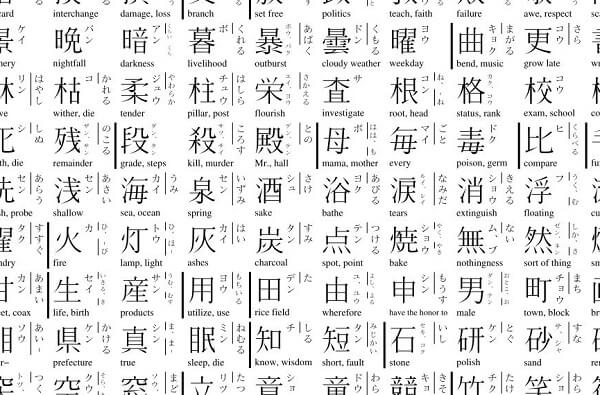 interchange damage, loss branch set free politics teach, faith failure awe, respect
晩 バン 暗 アン 暮 ボ くれる 暴 ボウ、バク あばく 曇 ドン くもる 曜 ヨウ 曲 キョク まがる 更 コウ さら
nightfall darkness livelihood outburst cloudy weather weekday bend, music grow late
林 リン はやし 枯 コ かれる 柔 ジュウ やわらか 柱 チュウ はしら 栄 エイ、ヨウ さかえる 査 サ 根 コン ね 格 カク、コウ 校 コウ
wither, die tender pillar, post flourish investigate root, head status, rank exam, school
死 シ しぬ 残 ザン、サン のこる 段 ダン、タン 殺 サツ、サイ ころす 殿 デン、テン との 母 ボ はは 毎 マイ ごと 毒 ドク 比 ヒ くらべる
remainder grade, steps kill, murder Mr., hall mama, mother every poison, germ compare
洗 セン あらう 浅 セン あさい 海 カイ うみ 泉 セン いずみ 酒 シュ さけ 浴 ヨク あびる 涙 ルイ、レイ なみだ 消 ショウ きえる 浮 フ うく
shallow sea, ocean spring sake bathe tears extinguish floating
濯 タク すすぐ 火 カ ひ 灯 トウ ひ 灰 カイ はい 炭 タン すみ 点 テン つける 焼 ショウ やく 無 ム、ブ ない 然 ゼン、ネン
fire lamp, light ashes charcoal spot, point bake nothingness sort of thing
甘 カン あまい 生 セイ いきる 産 サン うむ 用 ヨウ もちいる 田 デン た 由 ユ、ユウ よし 申 シン もうす 男 ダン、ナン おとこ 町 チョウ まち
life, birth products utilize, use rice field wherefore have the honor to male town, block
相 ソウ あい 県 ケン かける 真 シン ま 眠 ミン ねむる 知 チ しる 短 タン みじかい 石 セキ、コク 研 ケン とぐ 砂 サ、シャ すな
prefecture true sleep, die know, wisdom short, fault stone polish sand